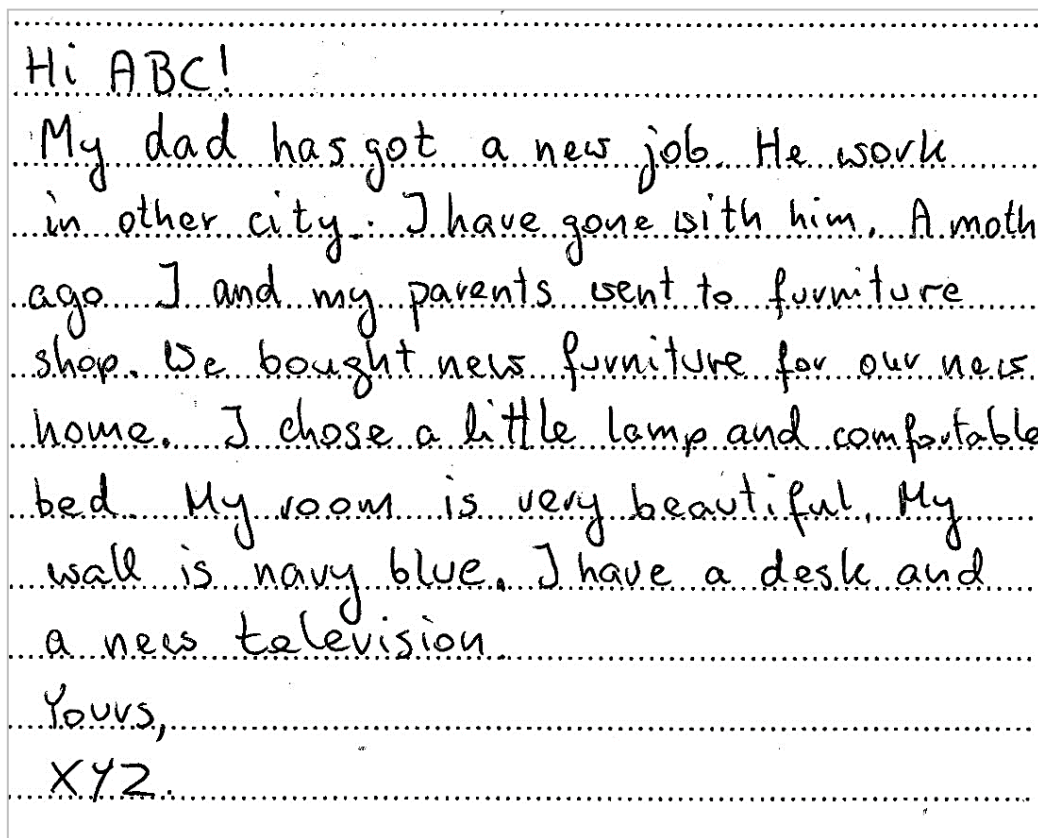 Hi ABC!
My dad has got a new job. He work
in other city. I have gone with him. A moth
ago I and my parents went to furniture
shop. We bought new furniture for our new
home. I chose a little lamp and comfortable
bed. My room is very beautiful. My
wall is navy blue. I have a desk and
a new television.
Yours,
XYZ.